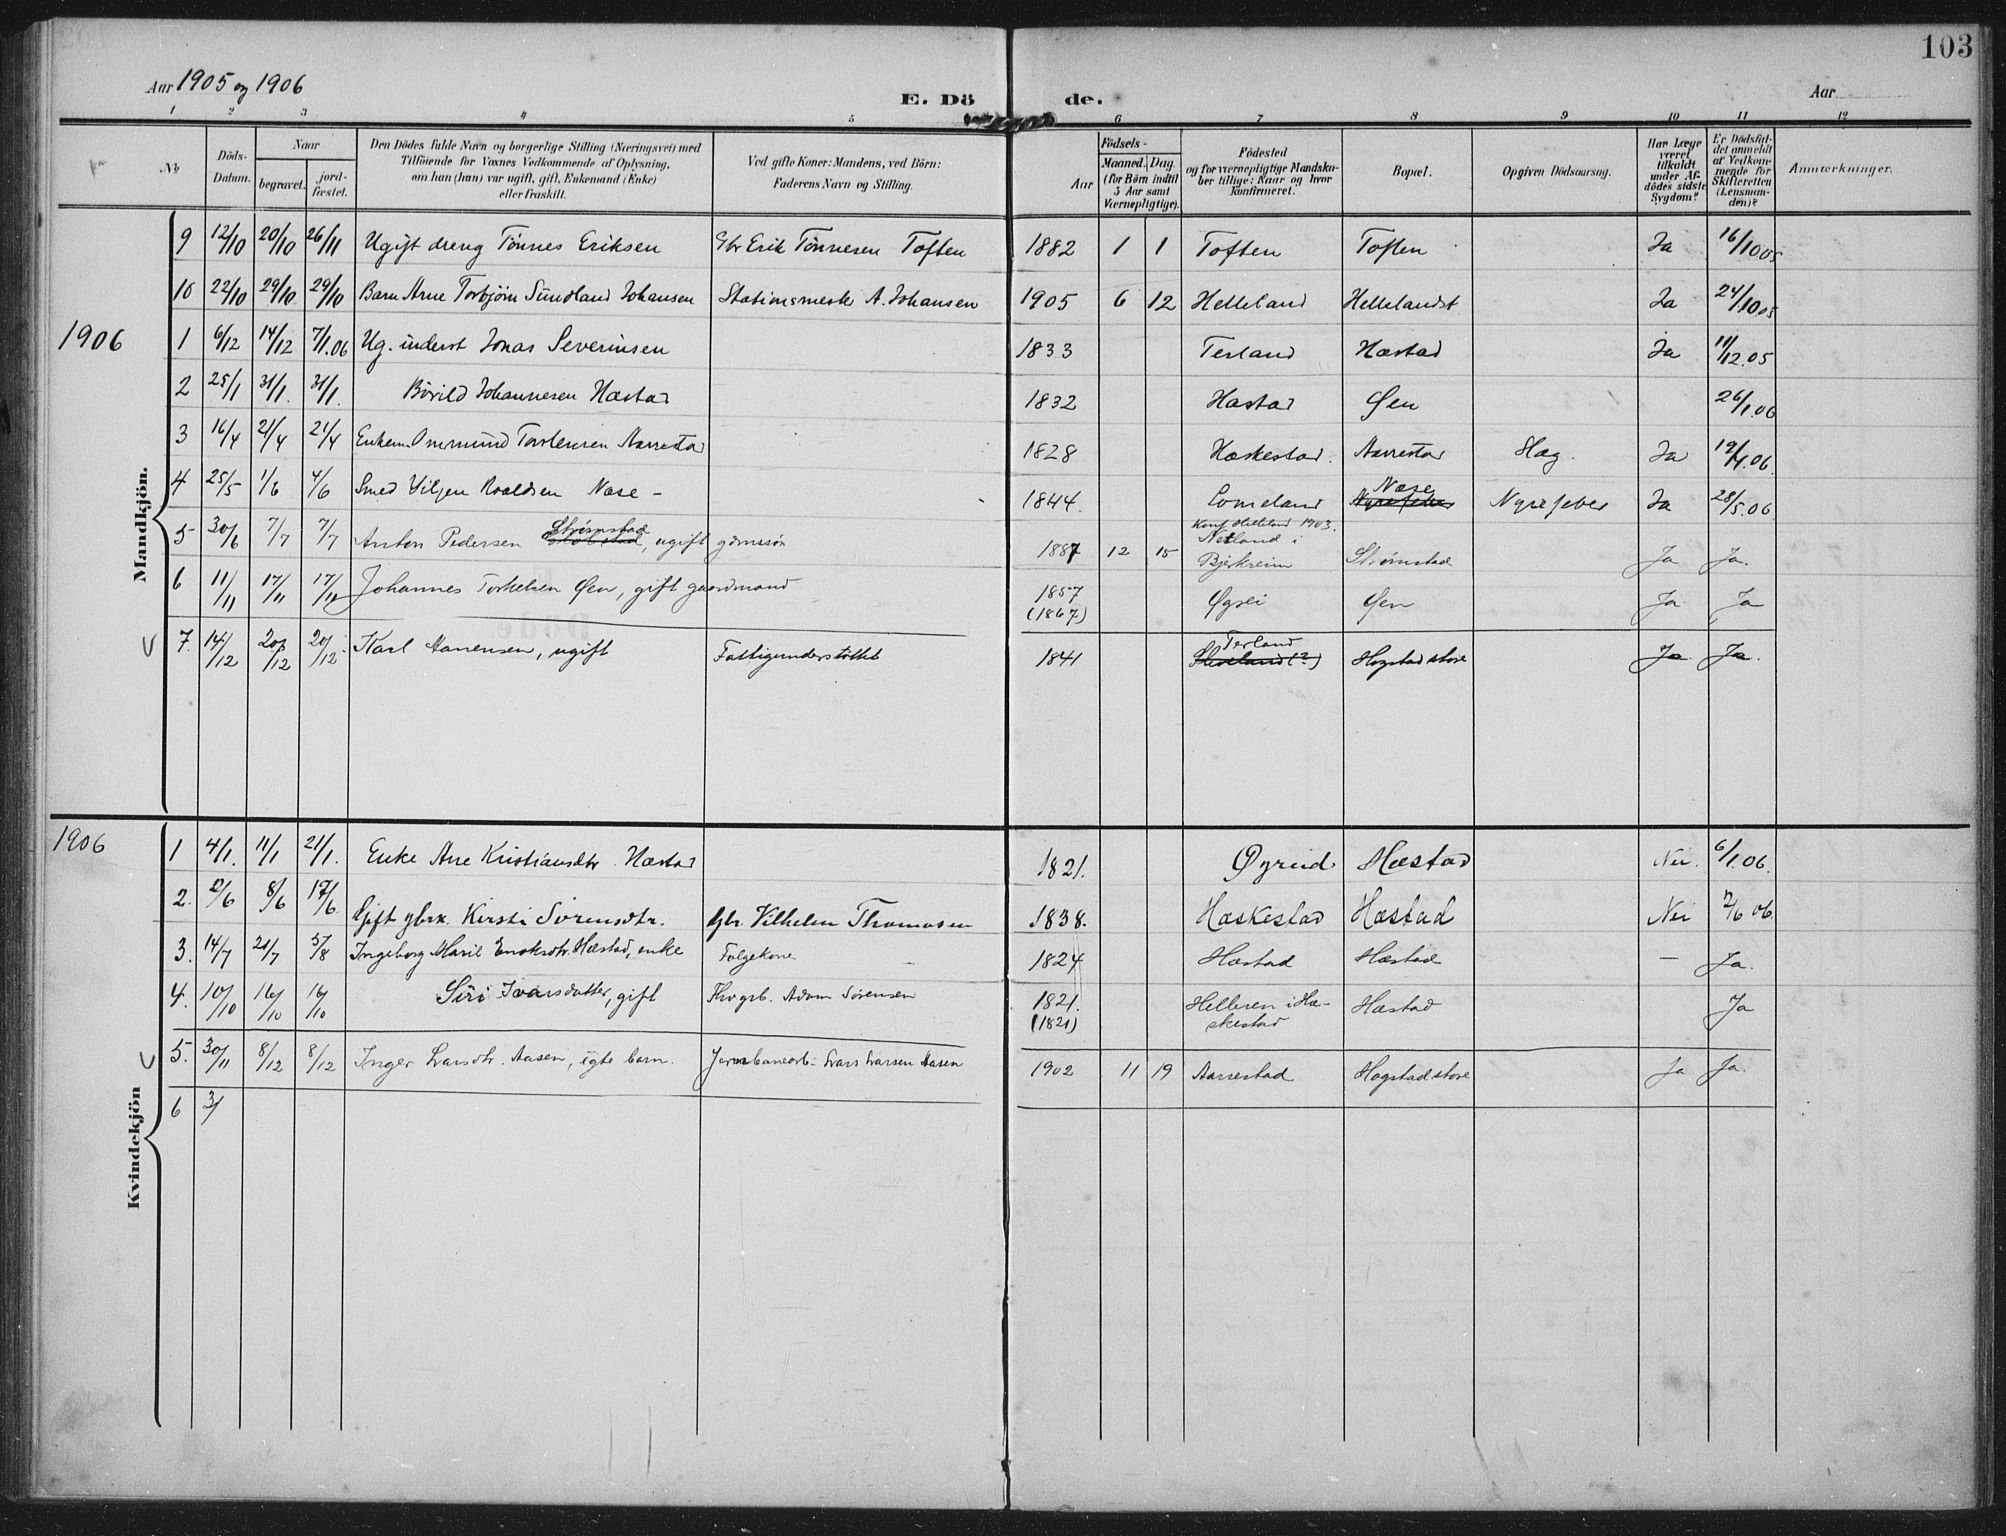 103
Aar 1905 og 1906
E. Dö de.
Aar
1 2 3 4 5 6 7 8 9 10 11 12
No. Döds-Datum. Naar begravet. jord-fæstet. Den Dödes fulde Navn og borgerlige Stilling (Næringsvei) med Tilföiende for Voxnes Vedkommende af Oplysning, om han (hun) var ugift, gift, Enkemand (Enke) eller fraskilt. Ved gifte Koner: Mandens, ved Börn: Faderens Navn og Stilling. Födsels- Aar Maaned. Dag. (for Börn indtil 5 Aar samt Værnepligtige). Födested og for værnepligtige Mandskaber tillige: Naar og hvor konfirmeret. Bopæl. Opgiven Dödsaarsag. Har Læge været tilkaldt under Afdödes sidste Sygdom? Er Dödsfaldet anmeldt af Vedkommende for Skifteretten (Lensmanden)? Anmærkninger.
Mandkjön.
9 12/10 20/10 26/11 Ugift dreng Tönnes Eriksen Gbr Erik Tönnesen Toften 1882 1 1 Toften Toften Ja 16/10.05
10 22/10 29/10 29/10 Barn Arne Torbjörn Sundland Johansen Stationsmester A. Johansen 1905 6 12 Helleland Hellelandst Ja 24/10.05
1906
1 6/12 14/12 7/1.06 Ug. inderst Jonas Severinsen 1833 Terland Hæstad Ja 11/12.05
2 25/1 31/1. 31/1. Börild Johannesen Hæstad 1832 Hæstad Øen 26/1.06
3 16/4 21/4 21/4 Enkem. Ommund Torstensen Aarrestad 1828 Hæskestad. Aarrestad Slag. Ja 19/4.06.
4 25/5 1/6 4/6 Smed Viljen Roaldsen Nase - 1844. Lomeland Nase Nyrefeber Nyrefeber Ja 28/5.06
5 30/6 7/7 7/7 Anton Pedersen Strömstad, ugift gdmssön 1887 12 15 Konf. Helleland 1903. Netland i Bjerkreim Strömstad Ja Ja.
6 11/11 17/11 17/11 Johannes Torkelsen Øen, gift gaardmand 1857 (1867) Øgrei Øen Ja Ja
7. 14/12 20/12 20/12 Karl Hansensen, ugift Fattigunderstöttet 1841 Terland Sleveland (?) Hogstad store Ja Ja.
1906
Kvindekjön
1 4/1. 11/1 21/1. Enke Ane Kristiansdtr Hæstad 1821. Øgreid Hæstad Nei. 6/1.06.
2. 2/6 8/6 17/6. Gift gbrk. Kirsti Sörensdtr. Gbr. Vilhelm Thomasen 1838. Hæskestad Hæstad Nei 7/6 06.
3. 14/7 21/7 5/8 Ingeborg Marie Enoksdtr. Hæstad, enke Folgekone 1824 Hæstad Hæstad — Ja.
4. 10/10 16/10 16/10 Siri Ivarsdatter, gift Fhv gsb. Adam Sörensen 1821. (1821) Helleren i Hæskestad Hæstad Ja
5. 30/11 8/12 8/12 Inger Larsdtr. Aasen, ægte barn. Jernbanearb. Lars Larsen Aasen 1902 11 19 Aarrestad Hogstad store Ja Ja.
6 3/